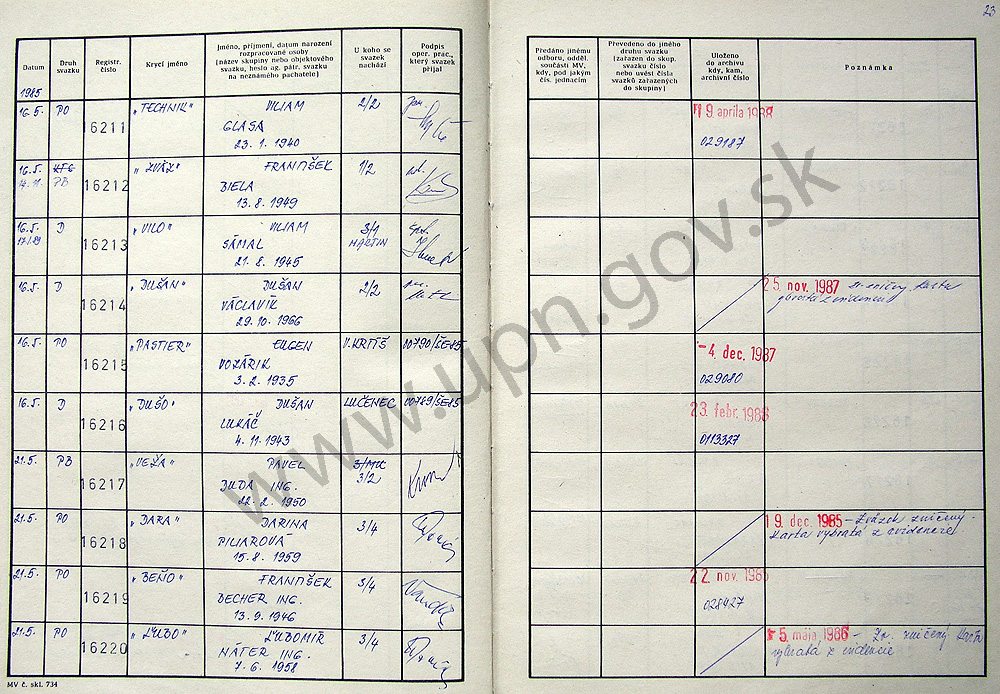 23
Datum
Druh svazku
Registr. číslo
Krycí jméno
Jméno, příjmení, datum narození rozpracované osoby (název skupiny nebo objektového svazku, heslo ag. pátr. svazku na neznámého pachatele)
U koho se svazek nachází
Podpis oper. prac., který svazek přijal
Předáno jinému odboru, odděl. součásti MV, kdy, pod jakým čís. jednacím
Převedeno do jiného druhu svazku (zařazen do skup. svazku číslo nebo uvést čísla svazků zařazených do skupiny)
Uloženo do archivu kdy, kam, archivní číslo
Poznámka
1985
16.5. PO 16211 "TECHNIK" VILIAM 2/2
GLASA
23. 1. 1940
9 apríla 1988
029187
16.5. 14.11. PB 16212 "ZVÁZ" FRANTIŠEK 1/2
BIELA
13. 8. 1949
16.5. D 16213 "VILO" VILIAM 3/1 MARTIN
SÁMAL
21. 8. 1945
16.5. D 16214 "DUŠAN" DUŠAN 2/2
VÁCLAVÍK
29. 10. 1966
25. nov. 1987
16.5. PO 16215 "PASTIER" EUGEN V.KRTÍŠ 00790/ŠE-85
VOZÁRIK
3. 2. 1935
- 4. dec. 1987
029080
16.5. D 16216 "DUŠO" DUŠAN LUČENEC 00789/ŠE-85
LUKÁČ
4. 11. 1943
23. febr. 1988
0113327
21.5. PB 16217 "VEŽA" PAVEL 3/2
DUDA ING.
22. 2. 1950
21.5. PO 16218 "DARA" DARINA 3/4
PILIAROVÁ
15. 8. 1959
19. dec. 1985 - Zväzok zničený.
Karta vybratá z evidencie
21.5. PO 16219 "BEŇO" FRANTIŠEK 3/4
DECHER ING.
13. 9. 1946
22. nov. 1985
028427
21.5. PO 16220 "ĽUBO" ĽUBOMÍR 3/4
NÁTER ING.
7. 6. 1958
5. mája 1986 - Zv. zničený karta
vybratá z evidencie
MV č. skl. 734
www.upn.gov.sk